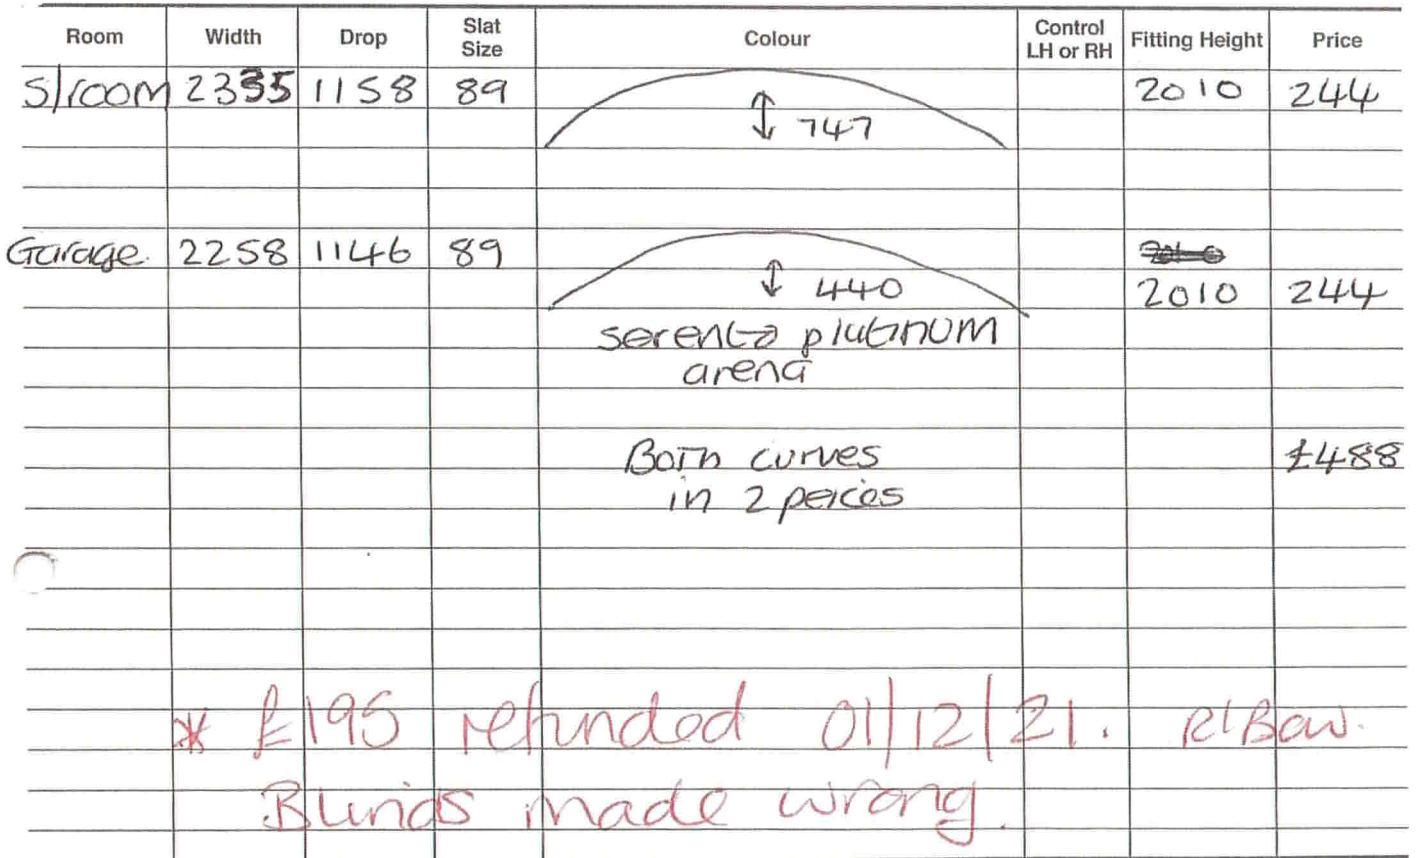 Room Width Drop Slat Size Colour Control LH or RH Fitting Height Price
S/room 2335 1158 89 2010 244
747
Garage. 2258 1146 89
440 2010 244
serento platinum
arena
Both curves £488
in 2 peices
* £195 refunded 01/12/21.
Blinds made wrong.